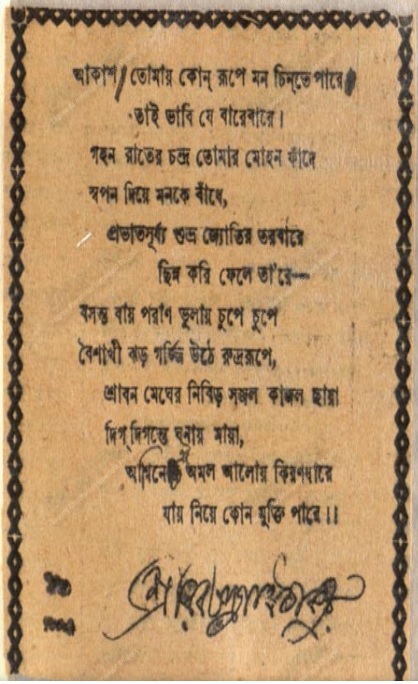 আকাশ, তোমায় কোন্ রূপে মন চিন্‌তে পারে
তাই ভাবি যে বারেবারে।
গহন রাতের চন্দ্র তোমার মোহন ফাঁদে
স্বপন দিয়ে মনকে বাঁধে,
প্রভাতসূর্য্য শুভ্র জ্যোতির তরবারে
ছিন্ন করি ফেলে তা'রে—
বসন্ত বায় পরাণ ভুলায় চুপে চুপে
বৈশাখী ঝড় গর্জ্জি উঠে রুদ্ররূপে,
শ্রাবন মেঘের নিবিড় সজল কাজল ছায়া
দিগ্‌দিগন্তে ঘনায় মায়া,
অমল আলোর কিরণধারে
যায় নিয়ে কোন মুক্তি পারে।।
শ্রীরবীন্দ্রনাথ ঠাকুর